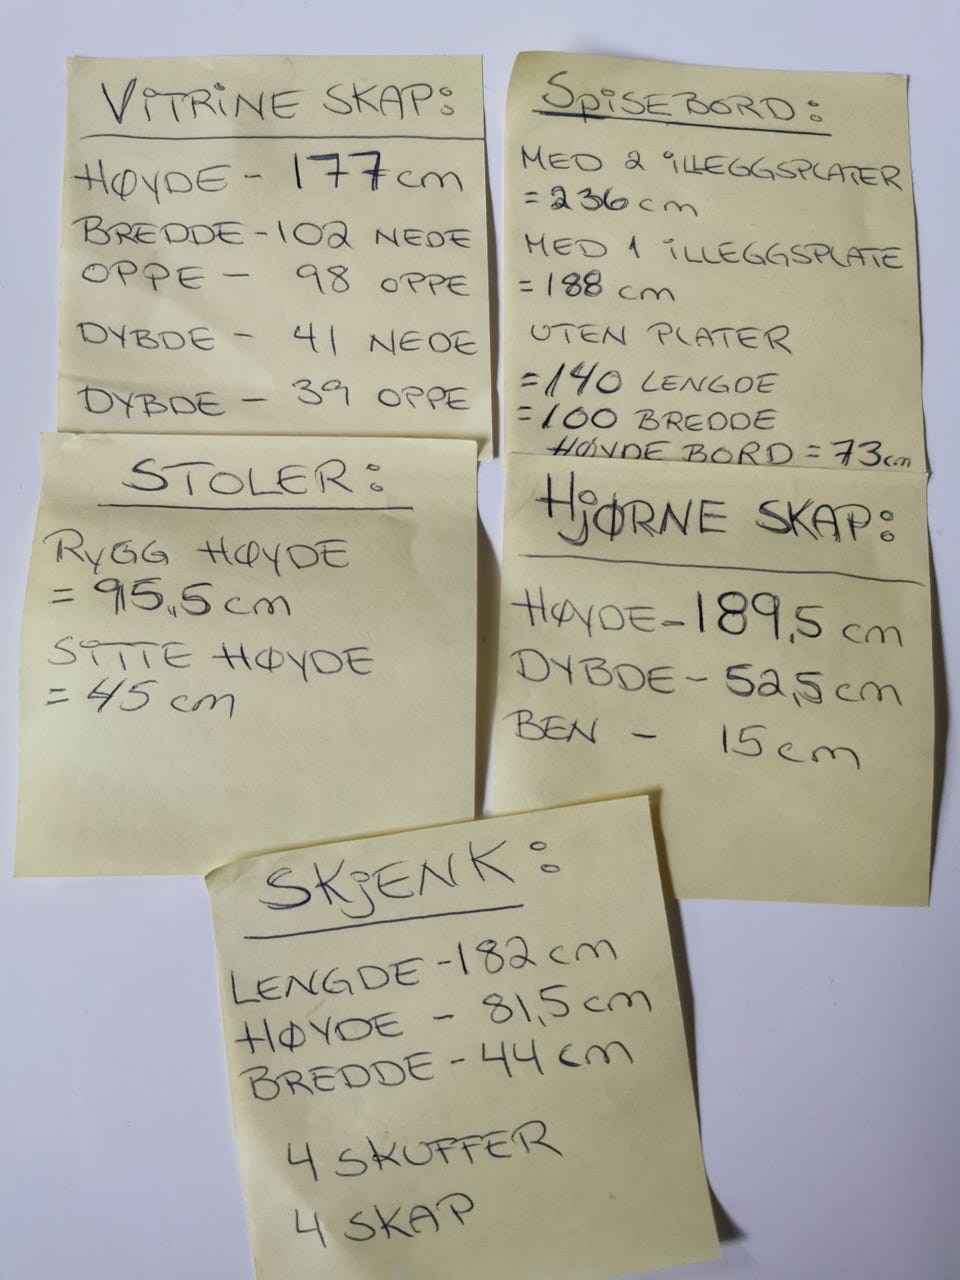 VITRINE SKAP:
HØYDE - 177cm
BREDDE - 102 NEDE
OPPE - 98 OPPE
DYBDE - 41 NEDE
DYBDE - 39 OPPE
SPISEBORD:
MED 2 ILLEGGSPLATER
= 236 cm
MED 1 ILLEGGSPLATE
= 188 cm
UTEN PLATER
= 140 LENGDE
= 100 BREDDE
HØYDE BORD = 73cm
STOLER:
RYGG HØYDE
= 95,5 cm
SITTE HØYDE
= 45 cm
HjØRNE SKAP:
HØYDE - 189,5 cm
DYBDE - 52,5 cm
BEN - 15 cm
SKjENK:
LENGDE - 182 cm
HØYDE - 81,5 cm
BREDDE - 44 cm
4 SKUFFER
4 SKAP